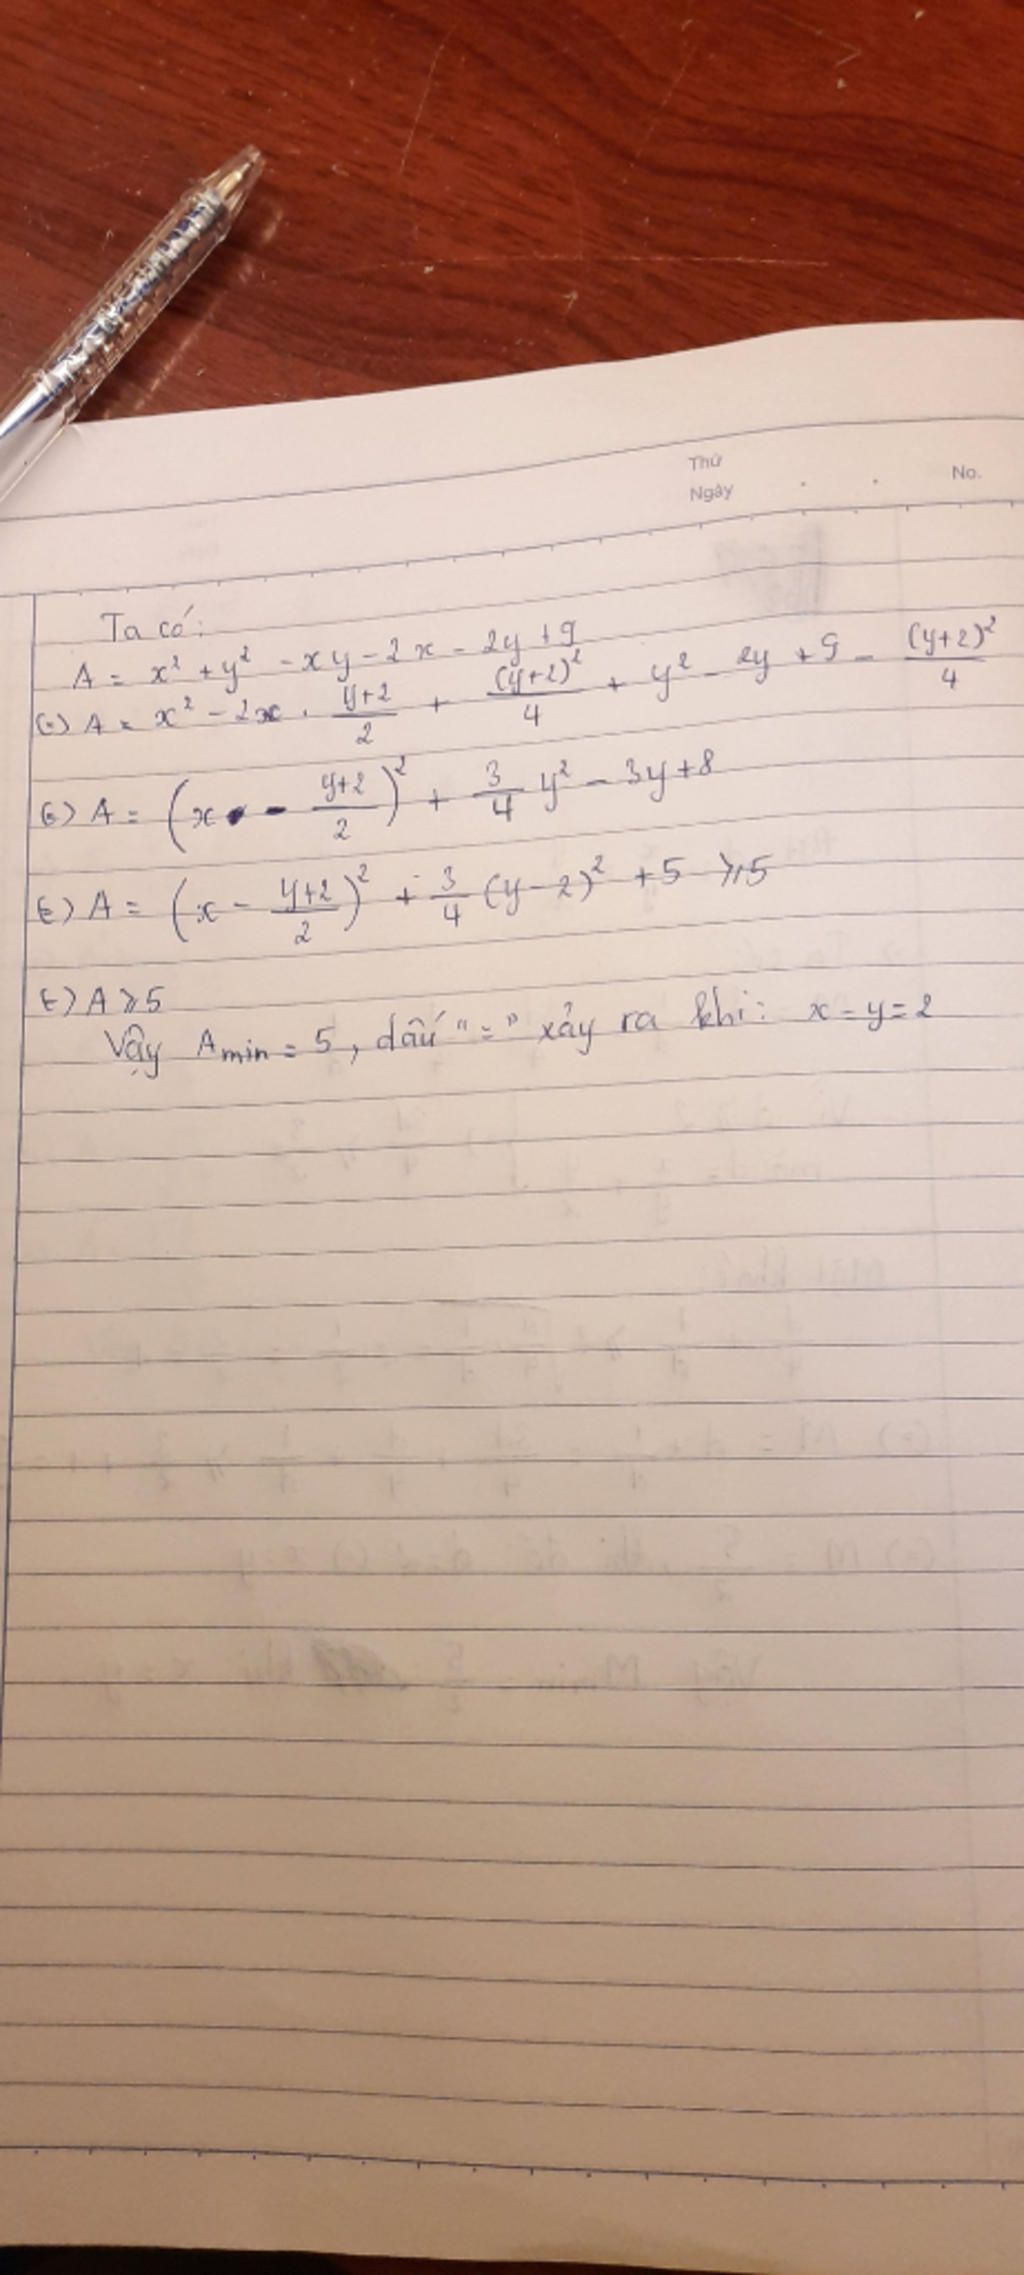 Thứ
Ngày . . No.
Ta có:
A = x² + y² - xy - 2x - 2y + 9
(=) A = x² - 2x . \frac{y+2}{2} + \frac{(y+2)²}{4} + y² - 2y + 9 - \frac{(y+2)²}{4}
(=) A = (x - \frac{y+2}{2})² + \frac{3}{4} y² - 3y + 8
(=) A = (x - \frac{y+2}{2})² + \frac{3}{4} (y - 2)² + 5 ⩾ 5
(=) A ⩾ 5
Vậy Amin = 5, dấu "=" xảy ra khi: x = y = 2